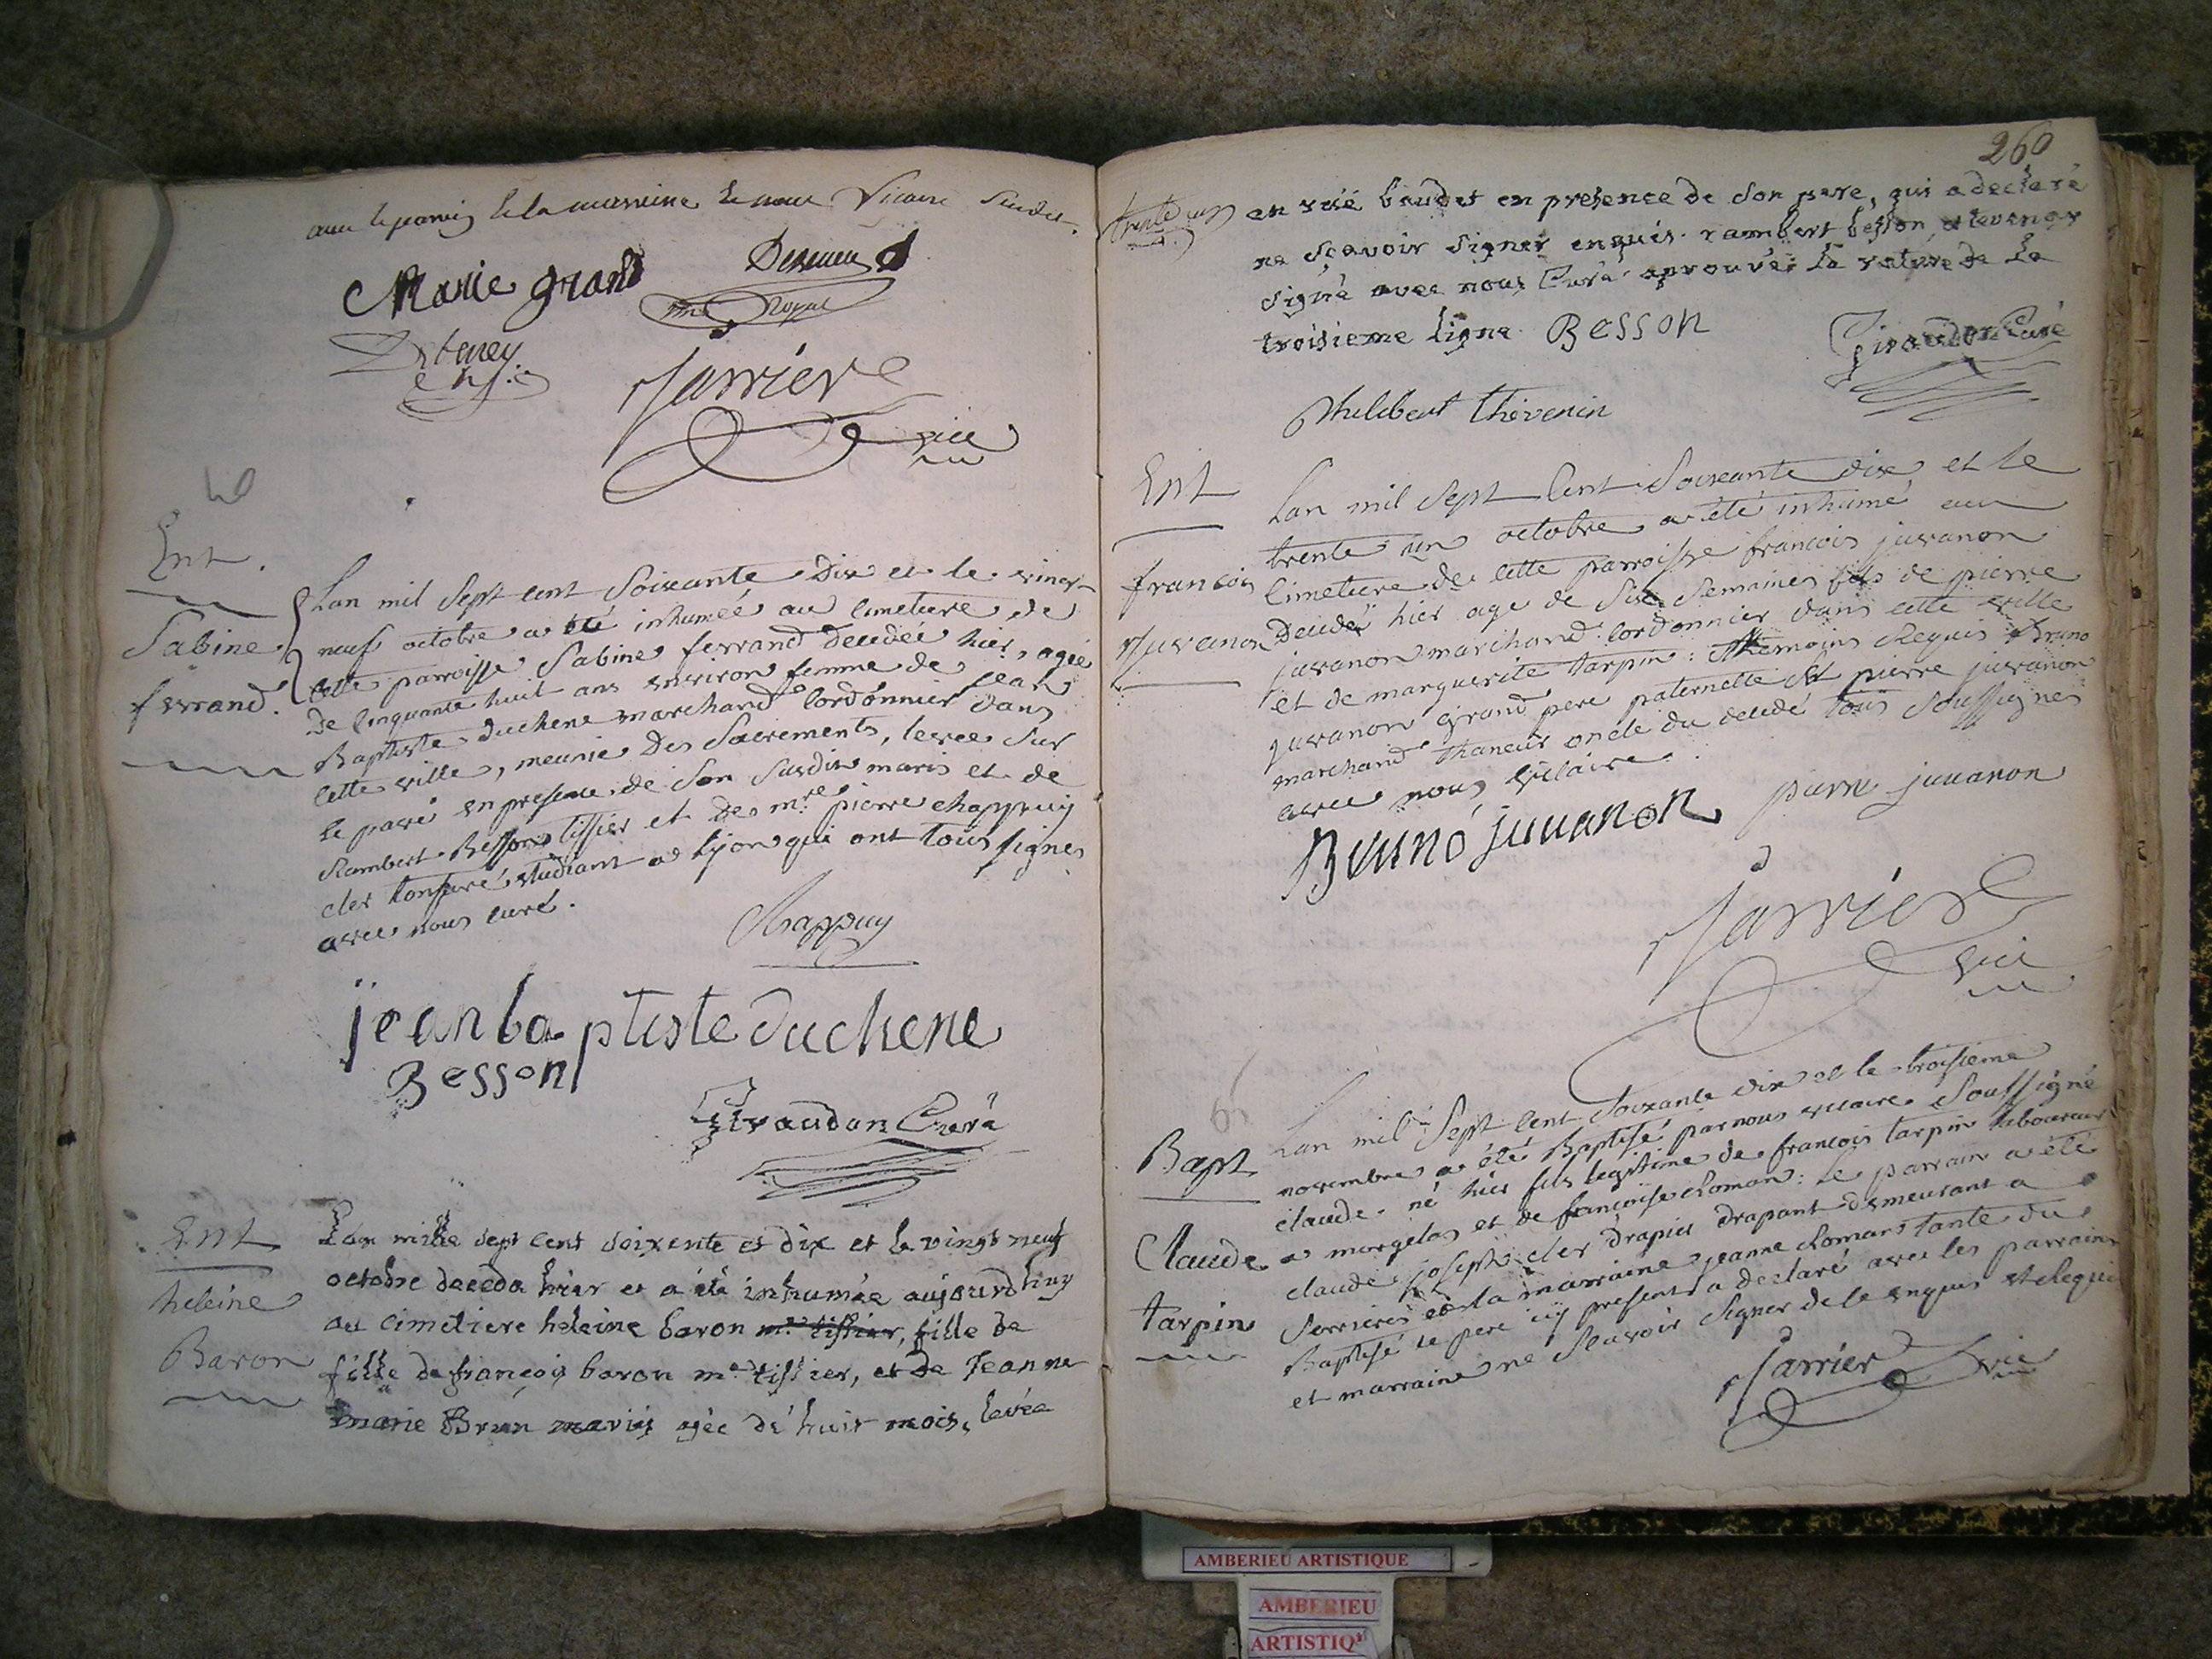 avec le parrain et la marraine et nous Vicaire
Marie grand
Royal
Jarrier
vice
Ent.
Sabine
ferrand.
Lan mil Sept cent Soixante Dix et le vingt
neuf octobre a été inhumeé au cimetiere de
cette parroisse Sabine ferrand decedeé hier, ageé
De Cinquante huit ans environ femme de jean
Baptiste duchene marchand Cordonnier dans
cette ville, meunie Des Sacrements, leveé Sur
le pavé en presence de Son Susdit maris et de
Rambert Besson tissier et De mre pierre chappuy
cler tonsuré étudiant a Lyon qui ont tous signes
avec nous curé.
Chappuy
jean baptiste duchene
Besson
Giraudon Curé
Ent
heleine
Baron
Lan mille sept cent soixente et dix et le vingt neuf
octobre deceda hier et a été inhumée aujourdhuy
au cimetiere heleine baron me tissier, fille de
fille de françois baron me tissier, et de Jeanne
marie Brun mariés agée de huit mois, levée
260
en rüe baudet en presence de son pere, qui a declaré
ne sçavoir signer enquis. rambert besson, et
signé avec nous Curé aprouvée la rature de la
troisieme ligne Besson
Giraudon Curé
philibert thevenin
Ent
françois
Juvanon
Lan mil Sept Cent Soixante dix et le
trente un octobre a été inhumé au
Cimetiere de cette parroisse francois juvanon
Decedé hier age de Six Semaines fils de pierre
juvanon marchand Cordonnier dans cette ville
et de marguerite tarpin: themoins Requis Bruno
juvanon grand pere paternelle et pierre juvanon
marchand thaneur oncle du decedé tous Soussignes
avec nous vicaire.
Brunó juuanon
pierre juuanon
Jarrier
vice
Bapt
Claude
tarpin
Lan mil Sept Cent Soixante dix et le troisieme
novembre a été Baptisé par nous vicaire Soussigné
claude né hier fils legitime de francois tarpin laboureur
a morgelas et de françoise Roman: le parrain a été
claude joseph cler drapier drapant demeurant a
Serrieres et la marraine jeanne Roman tante du
Baptisé le pere icy present a declaré avec les parrain
et marraine ne Scavoir Signer de le enquis et Requis
Jarrier
vice
AMBERIEU ARTISTIQUE
AMBERIEU
ARTISTIQ